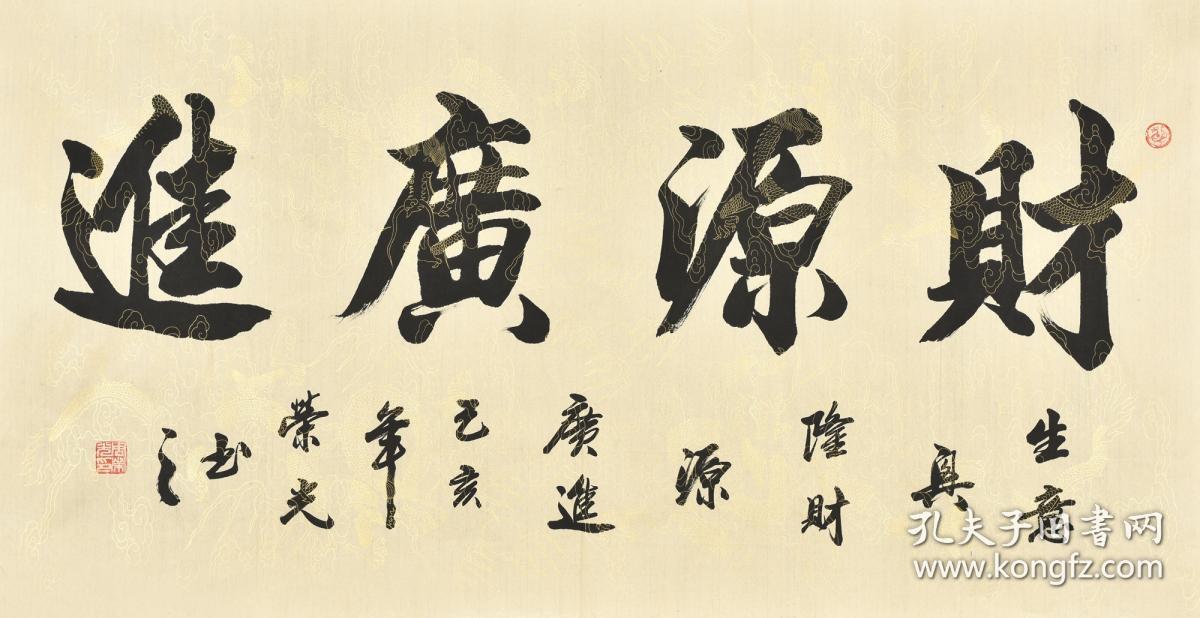 財源廣進
生意
興
隆財
源
廣進
己亥
年
榮光
书
之
孔夫子旧书网
www.kongfz.com